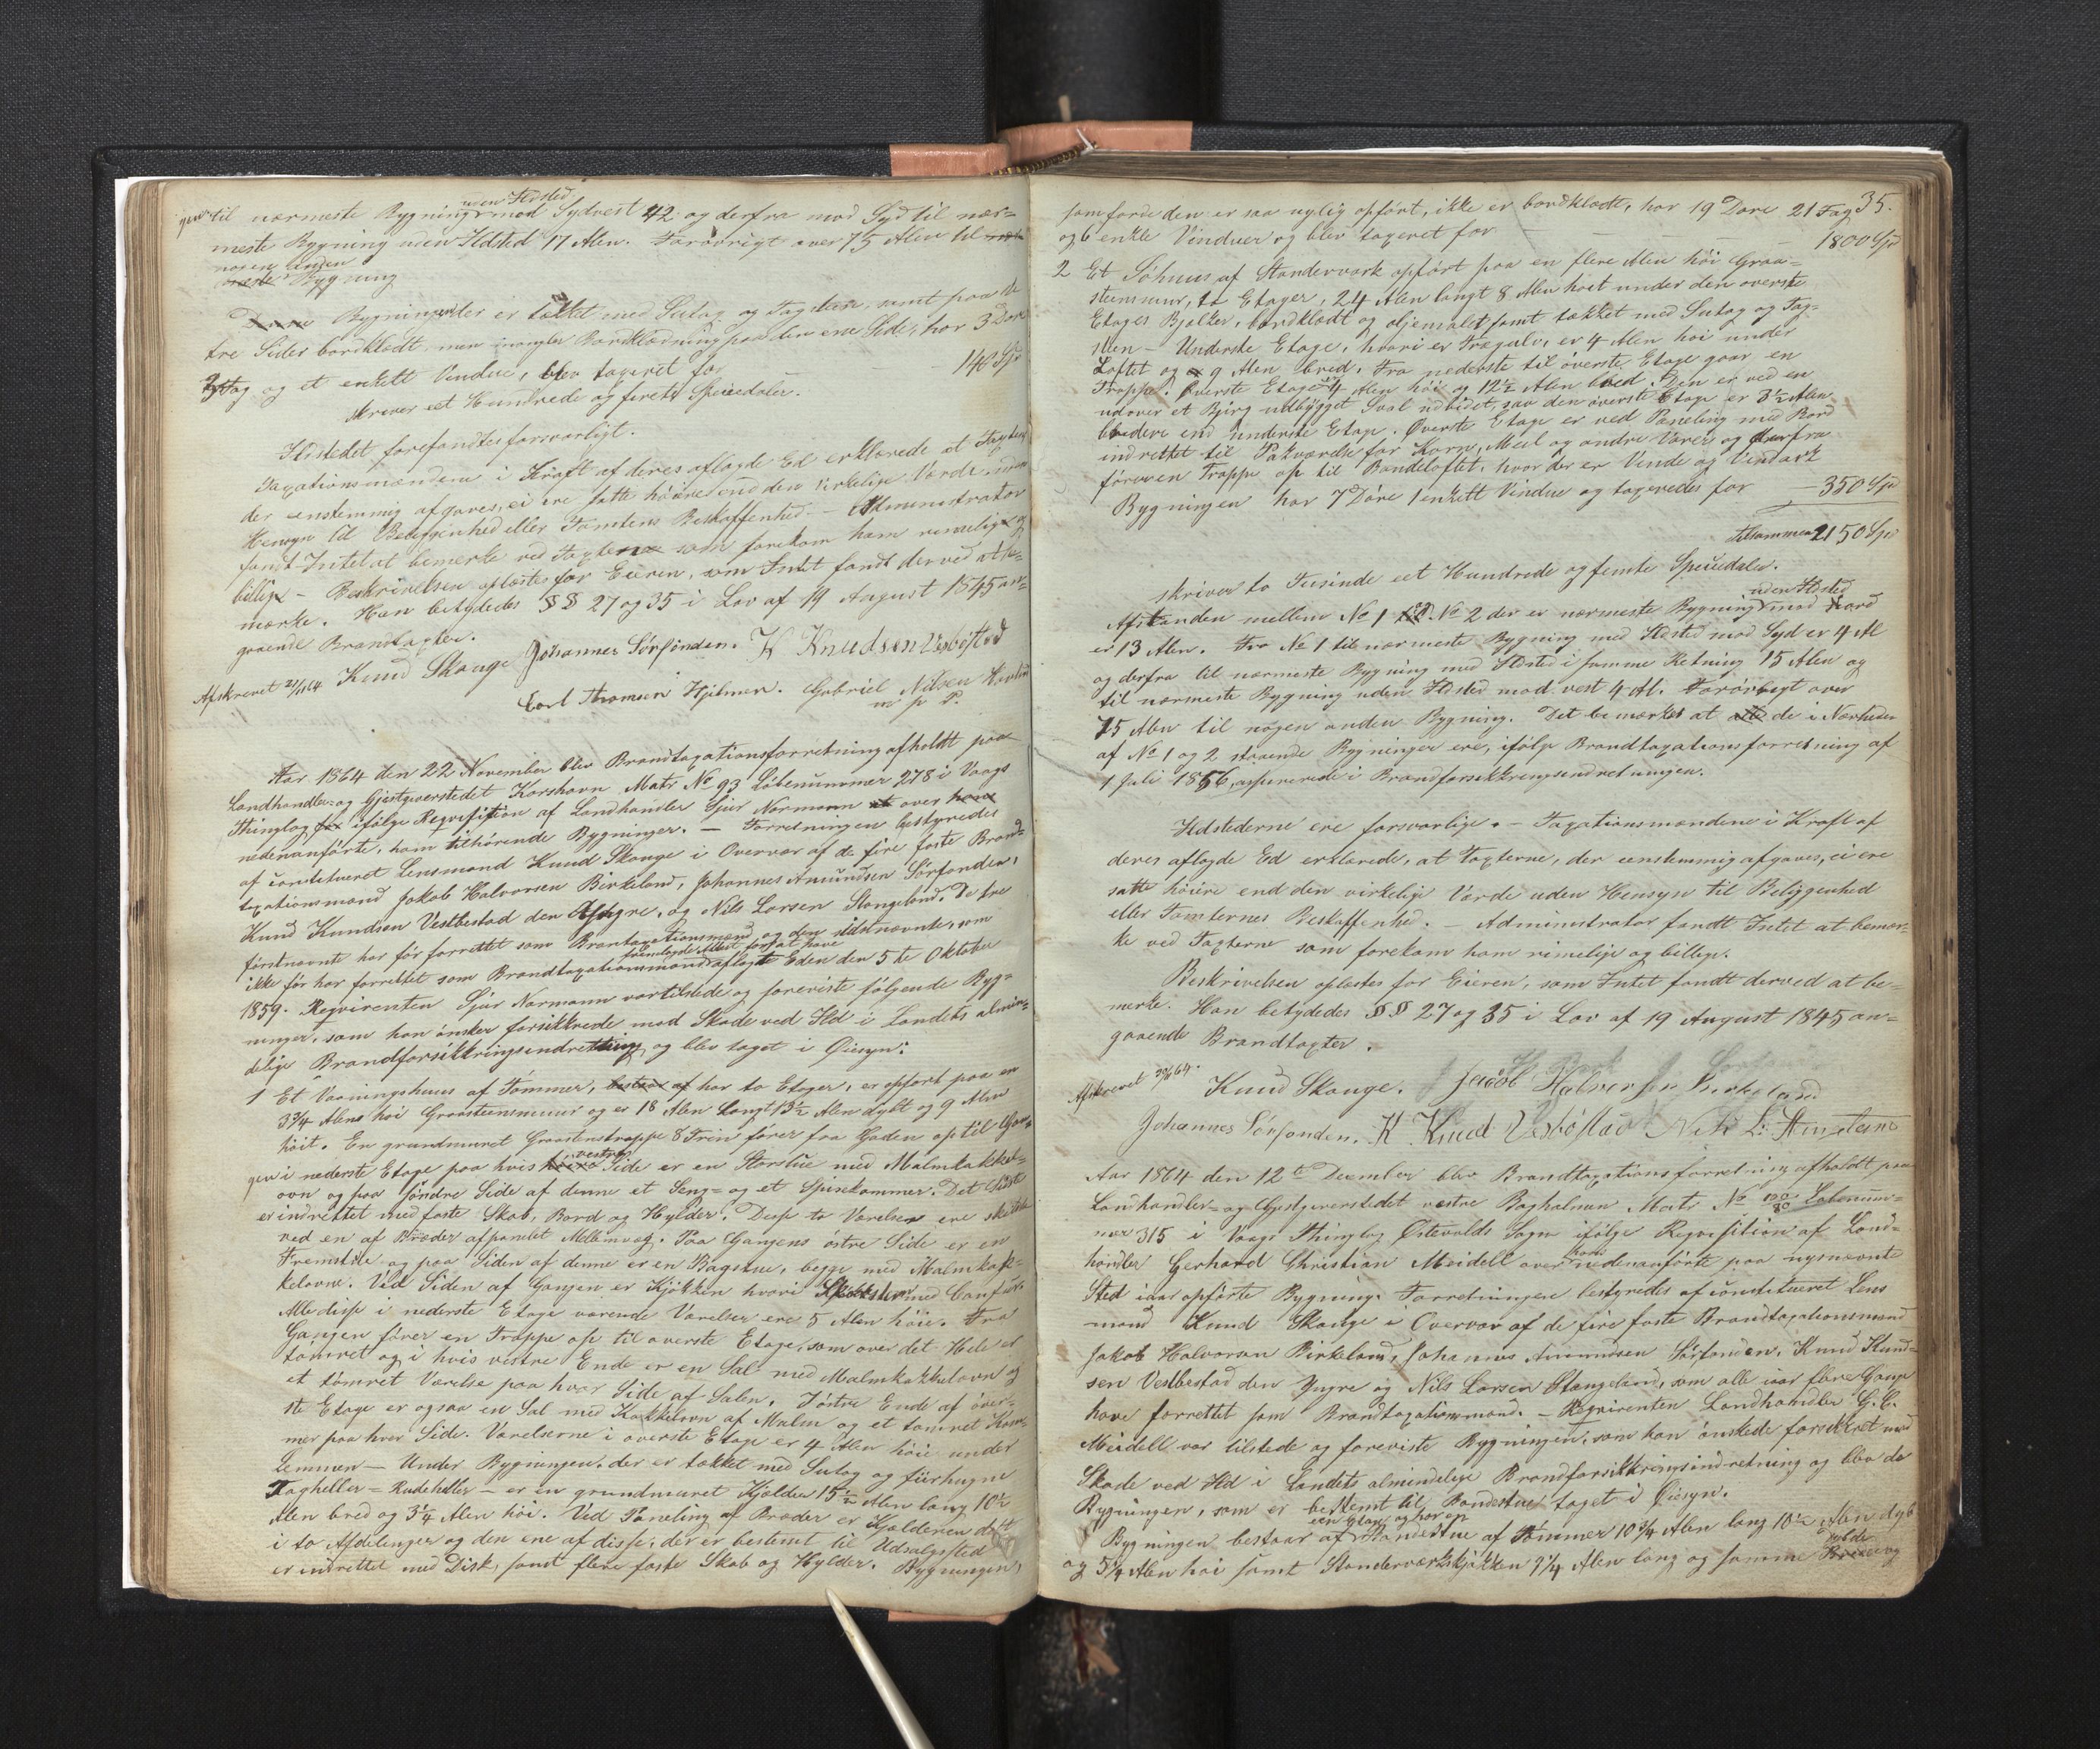 til nærmeste Bygning uden Ildsted mod Sydvest 42 og derfra mod Syd til nær=
meste Bygning uden Ildsted 17 Alen. Forøvrigt over 75 Alen til
nogen anden Bygning
Bygningen der er tækket med Sutag og Tagsteen samt paa de
tre Sider bordklædt men mangler Bordklædning paa den ene Side, har 3 Døre
3 Fag og et enkelt Vindue, blev taxeret for — — 140 Spd
skriver eet Hundrede og føreti Speciedaler.
Ildstedet forefandtes forsvarligt.
Taxationsmændene i Kraft af deres aflagde Ed erklærede at Taxten
der eenstemmig afgaves, ei ere satte høiere end den virkelige Værdi uden
Hensyn til Beliggenhed eller Tomtens Beskaffenhed. — Administrator
fandt Intet at bemærke ved Taxten som forekom ham rimelig og
billig — Beskrivelsen oplæstes for Eieren, som Intet fandt derved at be=
mærke. Han betydedes §§ 27 og 35 i Lov af 19 August 1845 an=
gaaende Brandtaxter.
Afskrevet 21/11 64 Knud Skauge Johannes Sørfonden. K Knudsen Vesbøstad
Carl Thomsen Hjelmen. Gabriel Nilsen
m p P.
Aar 1864 den 22 November blev Brandtaxationsforretning afholdt paa
Landhandler= og Gjestgiverstedet Korshavn Matr No 93 Løbenummer 278 i Vaags
Thinglag ifølge Reqvisition af Landhandler Sjur Normann over
nedenanførte, ham tilhørende Bygninger. — Forretningen bestyredes
af constitueret Lensmand Knud Skauge i Overvær af de fire faste Brand=
taxationsmænd Jakob Halvorsen Birkeland, Johannes Amundsen Sørfonden,
Knud Knudsen Vestbøstad den Yngre, og Nils Larsen Stangeland. De tre
førstnævnte har før forrettet som Brantaxationsmænd og den sidstnævnte, som
ikke før har forrettet som Brandtaxationsmand fremlagde Attest for at have aflagt Eden den 5te Oktober
1859. Reqvirenten Sjur Normann var tilstede og foreviste følgende Byg=
ninger, som han ønsker forsikkrede mod Skade ved Ild i Landets almin=
delige Brandforsikkringsindretning og blev taget i Øiesyn:
1 Et Vaaningshuus af Tømmer, har to Etager, er opført paa en
3¾ Alens høi Graasteensmuur og er 18 Alen langt 13½ Alen dybt og 9 Alen
høit. En grundmuret Graasteenstrappe 8 Trin fører fra Gaden op til Gan=
gen i nederste Etage paa hvis vestre Side er en Storstue med Malmkakkel=
ovn og paa søndre Side af denne et Seng= og et Spisekammer. Det sidste
er indrettet med faste Skab, Bord og Hylder. Disse to Værelser ere skildte
ved en af Bræder afpanlet Mellemvæg. Paa Gangens østre Side er en
Fremstue og paa Siden af denne er en Bagstue, begge med Malmkak=
kelovne. Ved Siden af Gangen er Kjøkken hvori Skorsteen med Comfur.
Alle disse i nederste Etage værende Værelser ere 5 Alen høie. Fra
Gangen fører en Trappe op til øverste Etage, som over det Hele er
tømret og i hvis vestre Ende er en Sal med Malmkakkelovn og
et tømret Værelse paa hver Side af Salen. I østre Ende af øver=
ste Etage er ogsaa en Sal med Kakkelovn af Malm og et tømret Kam=
mer paa hver Side. Værelserne i øverste Etage er 4 Alen høie under
Lemmen — Under Bygningen, der er tækket med Sutag og fiirhugne
Tagheller = Rudeheller — er en grundmuret Kjælder 15½ Alen lang 10½
Alen bred og 3¼ Alen høi. Ved Paneling af Bræder er Kjælderen delt
i to Afdelinger og den ene af disse, der er bestemt til Udsalgssted
er indrettet med Disk, samt flere faste Skab og Hylder. Bygningen,
35.
som fordi den er saa nylig opført, ikke er bordklædt, har 19 Døre 21 Fag
og 6 enkle Vinduer og blev taxeret for — — — 1800 Spd
2 Et Søhuus af Standerværk opført paa en flere Alen høi Graa=
steensmuur, to Etager, 24 Alen langt 8 Alen høit under den øverste
Etages Bjelker, bordklædt og oljemalet samt tækket med Sutag og Tag=
steen — Underste Etage, hvori er Trægulv, er 4 Alen høi under
Loftet og 9 Alen bred. Fra nederste til øverste Etage gaar en
Trappe. Øverste Etage er 4 Alen høi og 12½ Alen bred. Den er ved en
udover et Bjerg udbygget Sval udvidet, saa den øverste Etage er 3½ Alen
bredere end underste Etage. Øverste Etage er ved Paneling med Bord
indrettet til Pakværelse for Korn, Meel og andre Varer og derfra
fører en Trappe op til Bandeloftet, hvor der er Vinde og Vindark
Bygningen har 7 Døre 1 enkelt Vindue og taxeredes for — 350 Spd
Tilsammen 2150 Spd
skriver to Tusinde eet Hundrede og femti Speciedaler.
Afstanden mellem No 1 No 2 der er nærmeste Bygning uden Ildsted mod Nord
er 13 Alen. Fra No 1 til nærmeste Bygning med Ildsted mod Syd er 4 Al
og derfra til nærmeste Bygning med Ildsted i samme Retning 15 Alen og
til nærmeste Bygning uden Ildsted mod vest 4 Al. Forøvrigt over
75 Alen til nogen anden Bygning. Det bemærkes at alle de i Nærheden
af No 1 og 2 staaende Bygninger ere, ifølge Brandtaxationsforretning af
1 Juli 1856, assurerede i Brandforsikkringsindretningen.
Ildstederne ere forsvarlige. — Taxationsmændene i Kraft af
deres aflagde Ed erklærede, at Taxterne, der eenstemmig afgaves, ei ere
satte høiere end den virkelige Værde uden Hensyn til Beliggenhed
eller Tomternes Beskaffenhed. — Administrator fandt Intet at bemær=
ke ved Taxterne som forekom ham rimelige og billige.
Beskrivelsen oplæstes for Eieren, som Intet fandt derved at be=
mærke. Han betydedes §§ 27 og 35 i Lov af 19 August 1845 an=
gaaende Brandtaxter.
Afskrevet 30/11 64. Knud Skauge. Jacob Halvorsen Birkeland
Johannes Sørfonden. K Knud Vesbøstad Nils L: Stangeland
Aar 1864 den 12te December blev Brandtaxationsforretning afholdt paa
Landhandler= og Gjestgiverstedet vestre Bagholmen Matr No Løbenum=
mer 315 i Vaags Thinglag Østevolds Sogn ifølge Reqvisition af Land=
handler Gerhard Christian Meidell over hans nedenanførte paa nysnævnte
Sted iaar opførte Bygning. Forretningen bestyredes af constitueret Lens
mand Knud Skauge i Overvær af de fire faste Brandtaxationsmænd
Jakob Halvorsen Birkeland, Johannes Amundsen Sørfonden, Knud Knud=
sen Vestbøstad den Yngre og Nils Larsen Stangeland, som alle iaar flere Gange
have forrettet som Brandtaxationsmænd. — Reqvirenten Landhandler G. C.
Meidell var tilstede og foreviste Bygningen, som han ønskede forsikkret mod
Skade ved Ild i Landets almindelige Brandforsikkringsindretning og blev da
Bygningen, som er bestemt til Bondestue taget i Øiesyn.
Bygningen bestaar af een Etage og har en Bondestue af Tømmer 10¾ Alen lang 10½ Alen dyb
og 5¼ Alen høi samt Standerværkskjøkken 7¼ Alen lang og samme